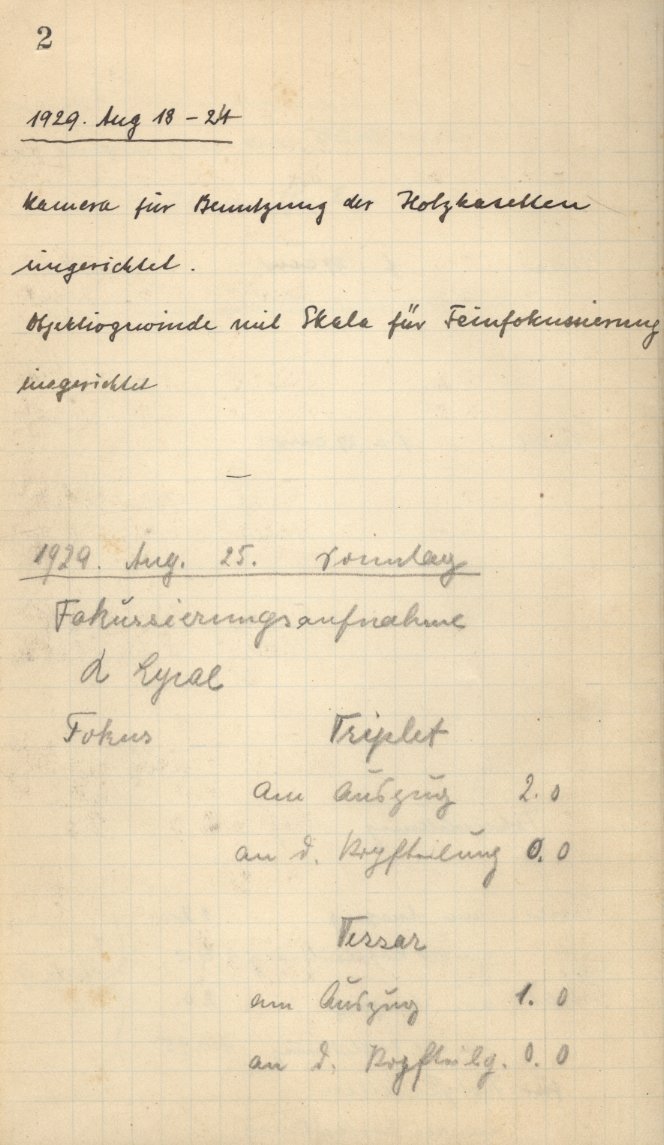 2
1929. Aug 18 – 24
Kamera für Benutzung der Holzkasetten
eingerichtet.
Objektivgewinde mit Skala für Feinfokussierung
eingerichtet
—
1929. Aug. 25. Sonntag
Fokussierungsaufnahme
α Lyrae
Fokus Triplet
am Auszug 2.0
an d. Kopfteilung 0.0
Tessar
am Auszug 1.0
an d. Kopfteilg. 0.0